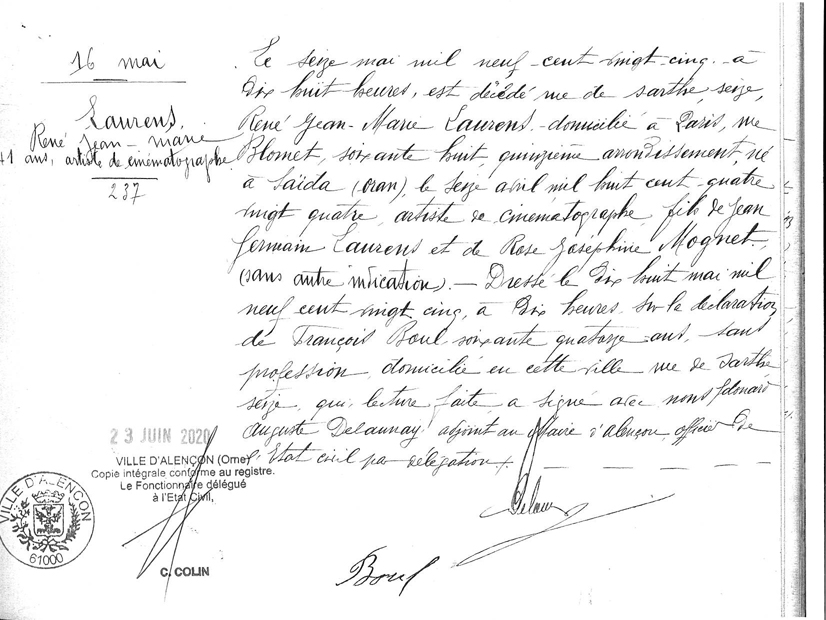 16 mai
Laurens,
René Jean-Marie
41 ans, artiste de cinématographe
237
Le seize mai mil neuf-cent vingt-cinq, à
dix huit heures, est décédé rue de Sarthe, seize,
René Jean-Marie Laurens, domicilié à Paris, rue
Blomet, soixante huit, quinzième arrondissement, né
à Saïda (Oran), le seize avril mil huit cent-quatre
vingt quatre, artiste de cinématographe, fils de Jean
Germain Laurens et de Rose Joséphine Mognet,
(sans autre indication).— Dressé le dix huit mai mil
neuf cent vingt cinq, à dix heures, sur la déclaration
de François Boul soixante quatorze ans, sans
profession, domicilié en cette ville rue de Sarthe,
seize, qui, lecture faite, a signé avec nous Edouard
Auguste Delaunay, adjoint au Maire d'Alençon, officier de
l'Etat civil par délégation ./.
Delaunay
Boul
23 JUIN 2020
VILLE D'ALENÇON (Orne)
Copie intégrale conforme au registre.
Le Fonctionnaire délégué
à l'Etat Civil,
C. COLIN
VILLE D'ALENÇON
61000